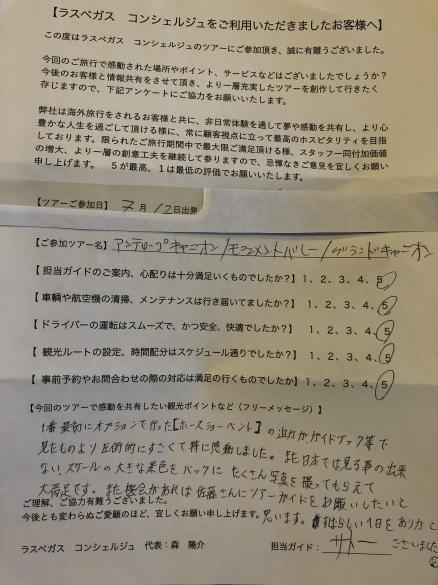 【ラスベガス　コンシェルジュをご利用いただきましたお客様へ】
この度はラスベガス　コンシェルジュのツアーにご参加頂き、誠に有難うございました。
今回のご旅行で感動された場所やポイント、サービスなどはございましたでしょうか？
今後のお客様と情報共有をさせて頂き、より一層充実したツアーを創作して行きたく
存じますので、下記アンケートにご協力をお願いいたします。
弊社は海外旅行をされるお客様と共に、非日常体験を通して夢や感動を共有し、より心
豊かな人生を過ごして頂ける様に、常に顧客視点に立って最高のホスピタリティーを目指
しております。限られたご旅行期間中で最大限ご満足頂ける様、スタッフ一同付加価値
の増大、より一層の創意工夫を継続して参りますので、忌憚なきご意見を宜しくお願い
申し上げます。　5が最高、1は最低の評価でお願いいたします。
【ツアーご参加日】　7月12日出発
【ご参加ツアー名】アンテロープキャニオン/モニュメントバレー/グランドキャニオン
【担当ガイドのご案内、心配りは十分満足いくものでしたか？】1、2、3、4、5
【車輌や航空機の清掃、メンテナンスは行き届いてましたか？】1、2、3、4、5
【ドライバーの運転はスムーズで、かつ安全、快適でしたか？】1、2、3、4、5
【 観光ルートの設定、時間配分はスケジュール通りでしたか？】1、2、3、4、5
【 事前予約やお問合わせの際の対応は満足の行くものでしたか】1、2、3、4、5
【今回のツアーで感動を共有したい観光ポイントなど（フリーメッセージ）】
1番最初にオプションで行った【ホースシューベント】の迫力がガイドブック等で
見たものより圧倒的にすごくて特に感動しました。また日本では見る事の出来
ない、スケールの大きな景色をバックに たくさん写真を撮ってもらえて
大満足です。また機会があれば佐藤さんにツアーガイドをお願いしたいと
ご理解、ご協力有難うございました。
今後とも変わらぬご愛顧のほど、宜しくお願い申し上げます。
思います。すばらしい1日をありがと
うございました。
ラスベガス　コンシェルジュ　代表：森　陽介
担当ガイド：サトー